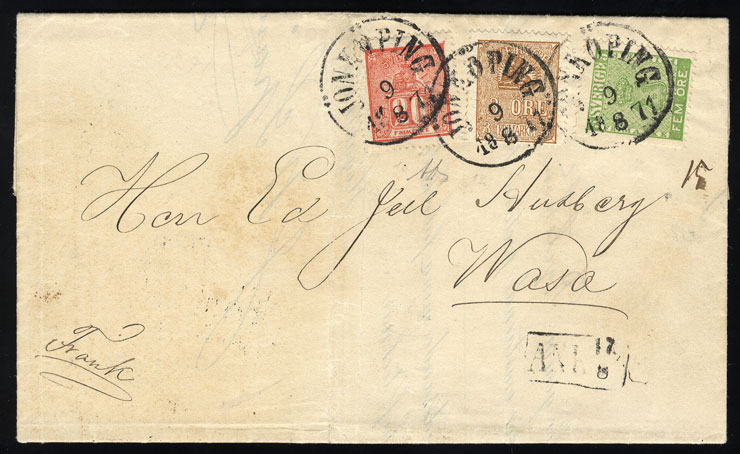 JÖNKÖPING
9
18 8 71
JÖNKÖPING
9
18 8 71
JÖNKÖPING
9
18 8 71
20
ÖRE
SVERIGE
FEM ÖRE
15
Herr Ed Jul Husberg
Wasa
Frank
ANK 17/8